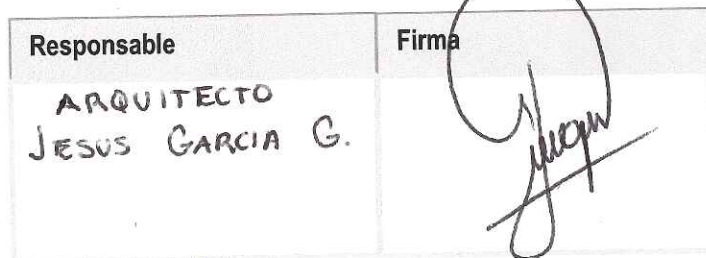 Responsable
Firma
ARQUITECTO
JESUS GARCIA G.